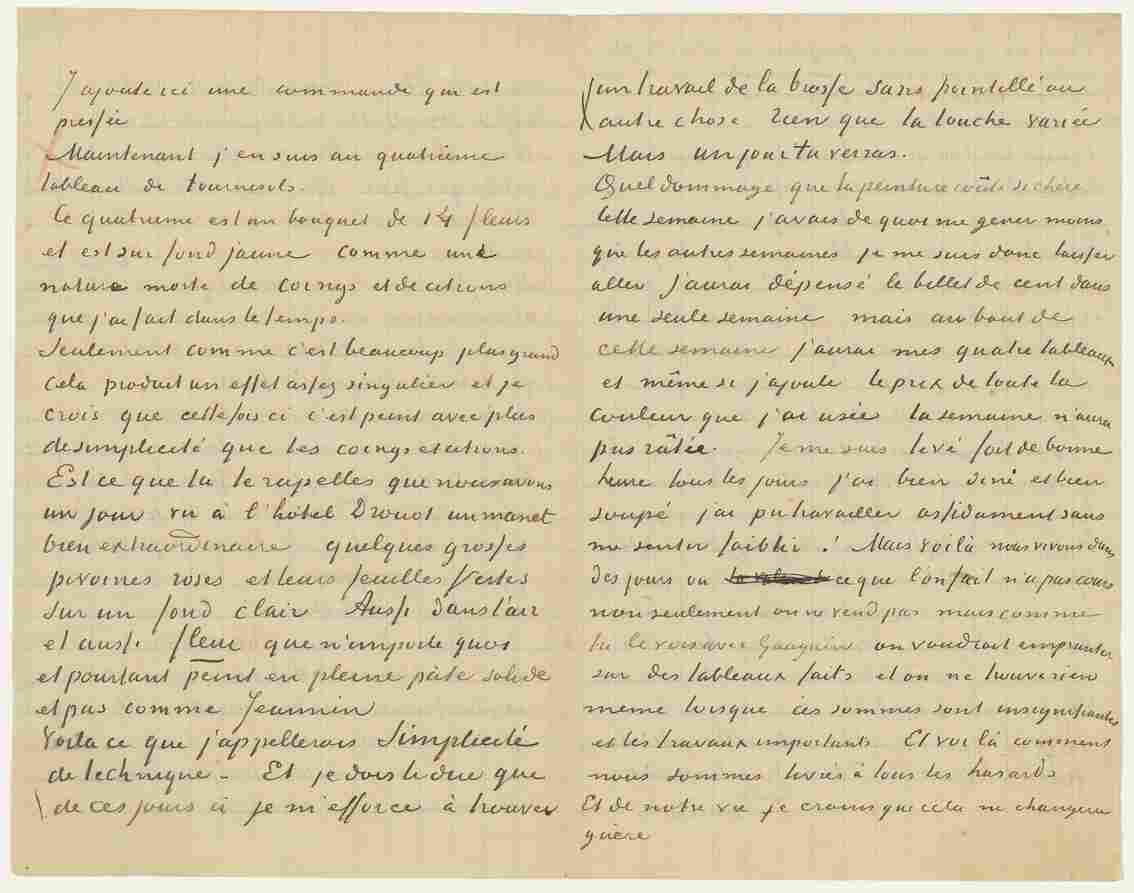 J'ajoute ici une commande qui est
pressée
Maintenant j'en suis au quatrième
tableau de tournesols.
Ce quatrième est un bouquet de 14 fleurs
et est sur fond jaune comme une
nature morte de coings et de citrons
que j'ai fait dans le temps.
Seulement comme c'est beaucoup plus grand
cela produit un effet assez singulier et je
crois que cette fois ci c'est peint avec plus
de simplicité que les coings et citrons.
Est ce que tu te rapelles que nous avons
un jour vu à l'hôtel Drouot un manet
bien extraordinaire quelques grosses
pivoines roses et leurs feuilles vertes
sur un fond clair Aussi dans l'air
et aussi fleur que n'importe quoi
et pourtant peint en pleine pâte solide
et pas comme Jeannin
Voilà ce que j'appellerais Simplicité
de technique – Et je dois te dire que
de ces jours ci je m'efforce à trouver
un travail de la brosse sans pointillé ou
autre chose rien que la touche variée
Mais un jour tu verras.
Quel dommage que la peinture coûte si chère
Cette semaine j'avais de quoi me gener moins
que les autres semaines je me suis donc laisser
aller J'aurai dépensé le billet de cent dans
une seule semaine mais au bout de
cette semaine j'aurai mes quatre tableaux
et même si j'ajoute le prix de toute la
couleur que j'ai usée la semaine n'aura
pas râtée. Je me suis levé fort de bonne
heure tous les jours j'ai bien diné et bien
soupé j'ai pu travailler assidument sans
me sentir faiblir ! Mais voilà nous vivons dans
des jours ou ce que l'on fait n'a pas cours
non seulement on ne vend pas mais comme
tu le vois avec Gauguin on voudrait emprunter
sur des tableaux faits et on ne trouve rien
meme lorsque ces sommes sont insignifiantes
et les travaux importants. Et voilà comment
nous sommes livrés à tous les hasards
Et de notre vie je crains que cela ne changera
guère